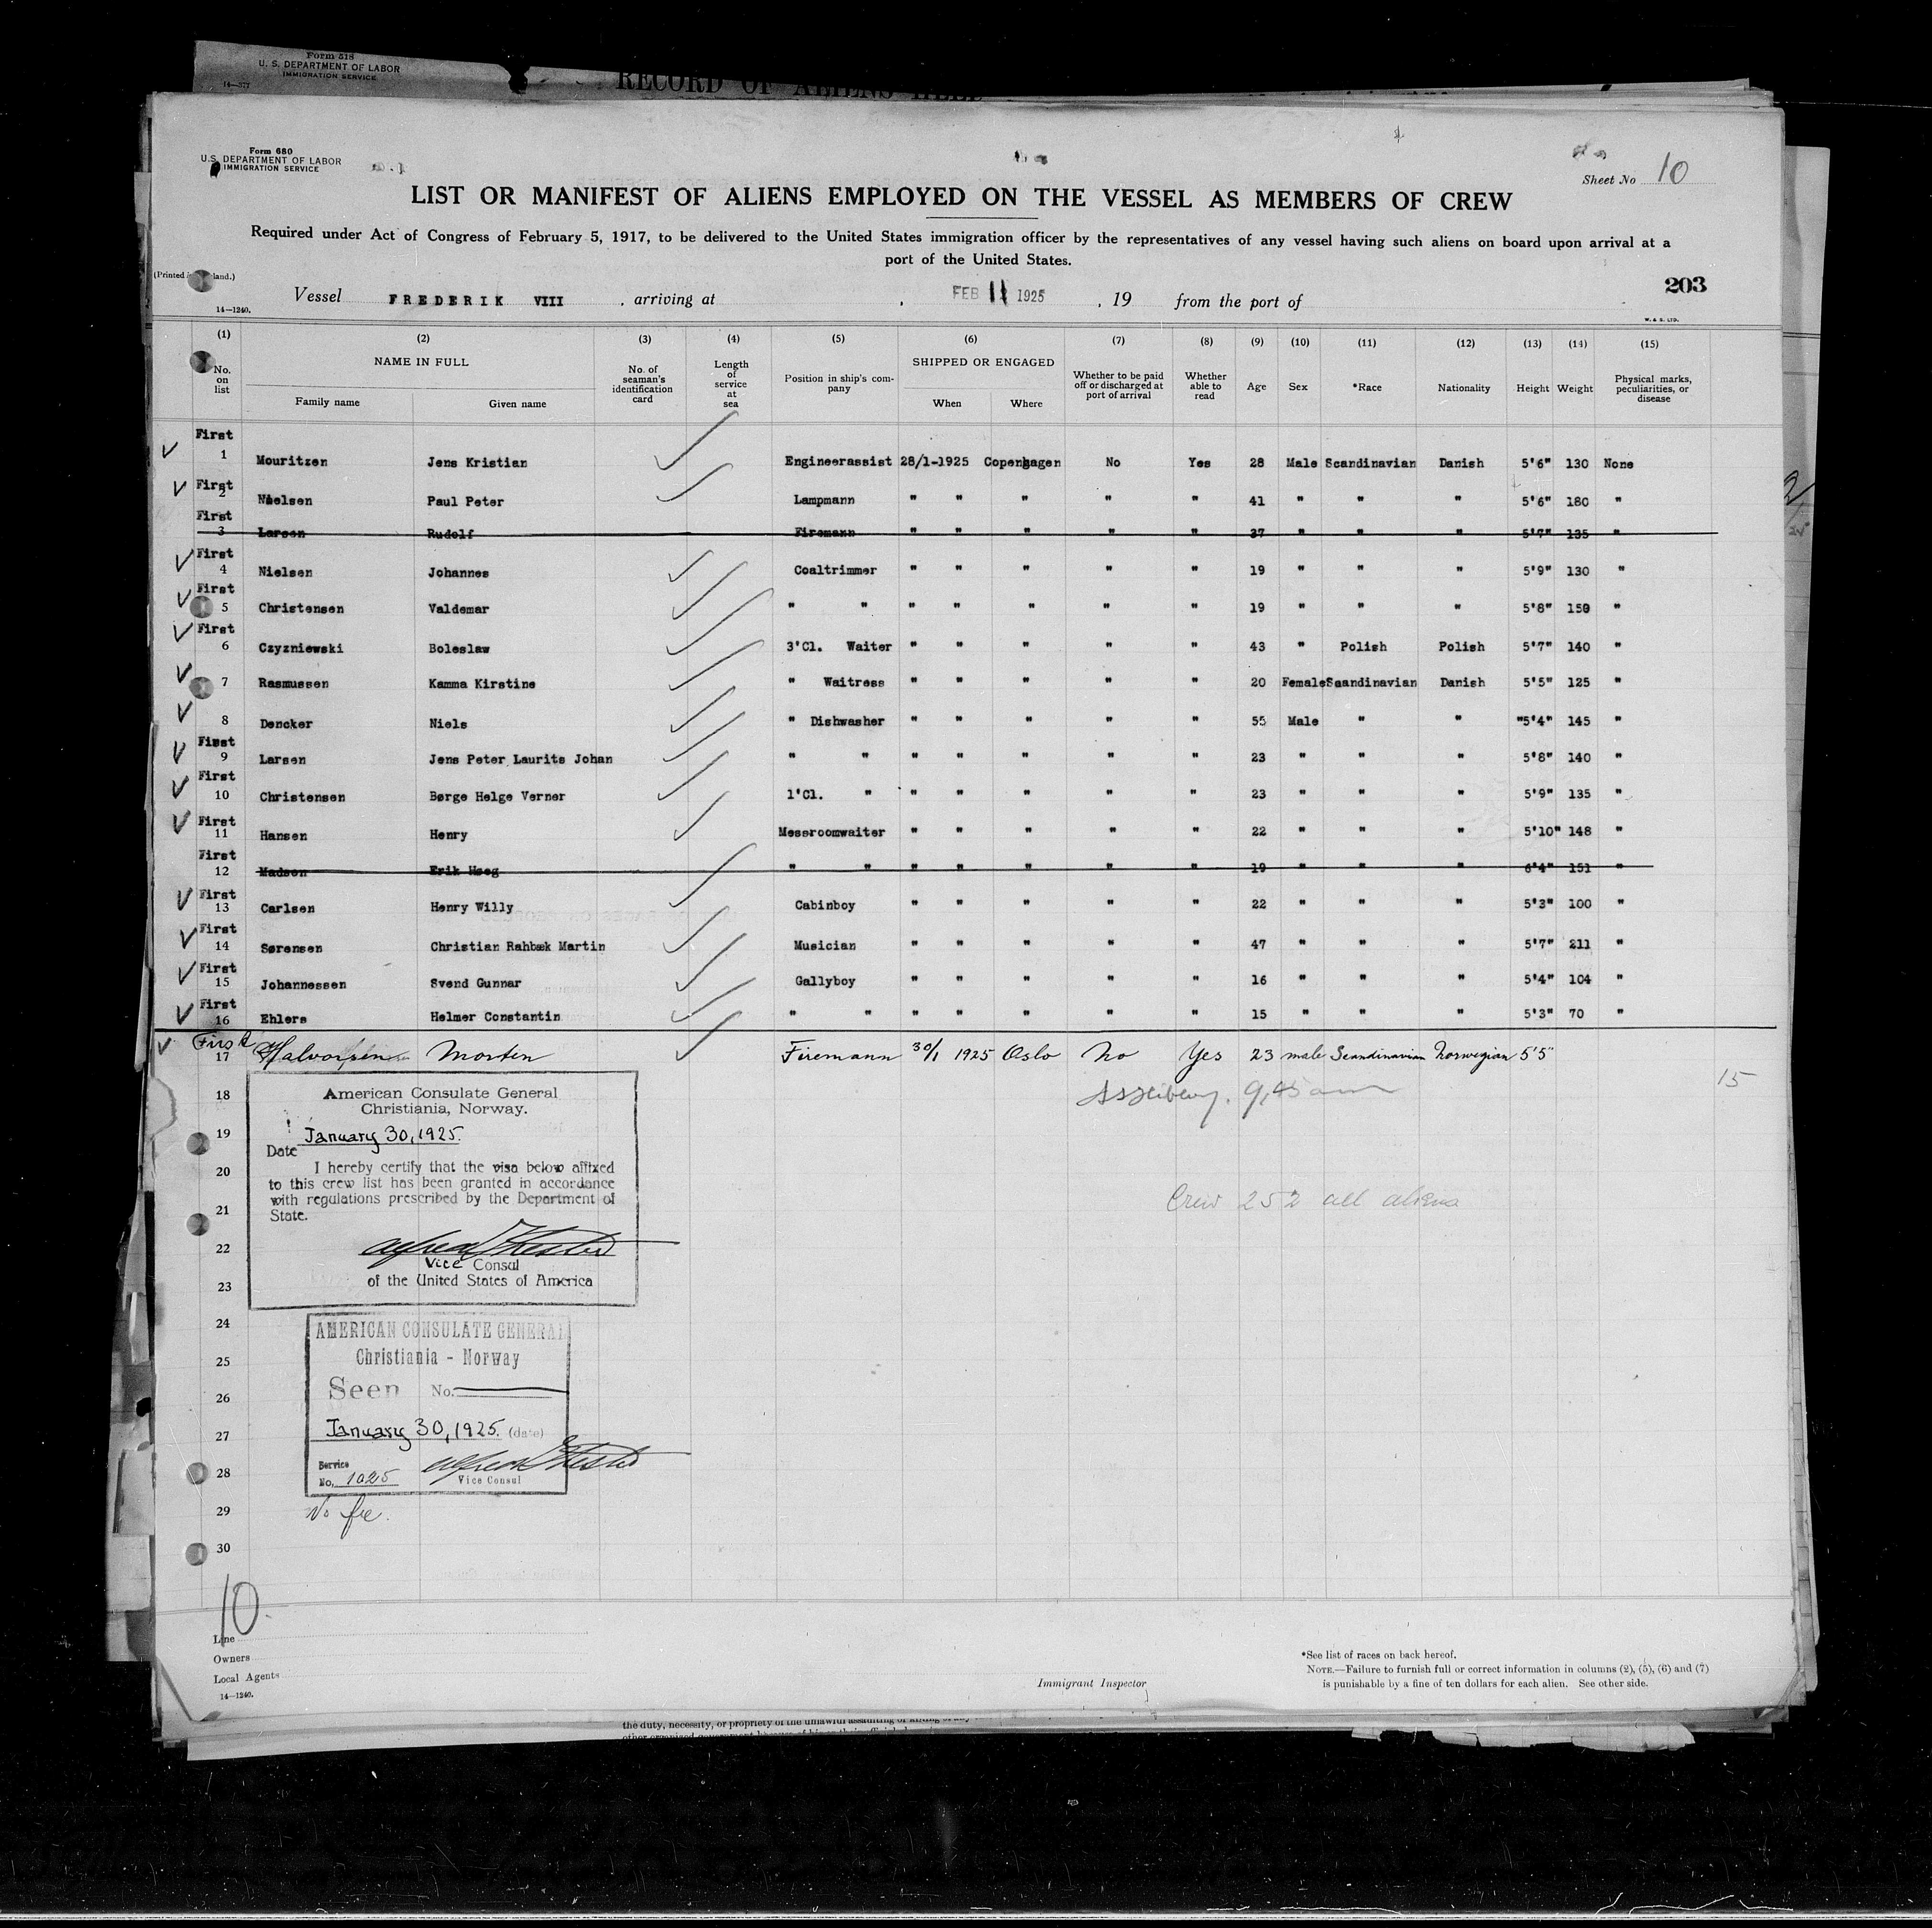 Form 518
U. S. DEPARTMENT OF LABOR
IMMIGRATION SERVICE
14—377
RECORD OF ALIENS HELD
Form 680
U.S. DEPARTMENT OF LABOR
IMMIGRATION SERVICE
Sheet No 10
LIST OR MANIFEST OF ALIENS EMPLOYED ON THE VESSEL AS MEMBERS OF CREW
Required under Act of Congress of February 5, 1917, to be delivered to the United States immigration officer by the representatives of any vessel having such aliens on board upon arrival at a
port of the United States.
(Printed land.)
203
Vessel FREDERIK VIII , arriving at , FEB 1925 , 19 from the port of
14—1240.
W. & S. LTD.
(1) (2) (3) (4) (5) (6) (7) (8) (9) (10) (11) (12) (13) (14) (15)
No. on list NAME IN FULL Family name Given name No. of seaman's identification card Length of service at sea Position in ship's company SHIPPED OR ENGAGED When Where Whether to be paid off or discharged at port of arrival Whether able to read Age Sex *Race Nationality Height Weight Physical marks, peculiarities, or disease
First 1 Mouritzen Jens Kristian Engineerassist 28/1-1925 Copenhagen No Yes 28 Male Scandinavian Danish 5'6" 130 None
First 2 Nielsen Paul Peter Lampmann " " " " " 41 " " " 5'6" 180 "
First 3 Larsen Rudolf Firemann " " " " " 37 " " " 5'7" 135 "
First 4 Nielsen Johannes Coaltrimmer " " " " " 19 " " " 5'9" 130 "
First 5 Christensen Valdemar " " " " " " " 19 " " " 5'8" 150 "
First 6 Czyzniewski Boleslaw 3'Cl. Waiter " " " " " 43 " Polish Polish 5'7" 140 "
7 Rasmussen Kamma Kirstine " Waitress " " " " " 20 Female Scandinavian Danish 5'5" 125 "
8 Dencker Niels " Dishwasher " " " " " 55 Male " " "5'4" 145 "
First 9 Larsen Jens Peter Laurits Johan " " " " " " " 23 " " " 5'8" 140 "
First 10 Christensen Børge Helge Verner 1'Cl. " " " " " " 23 " " " 5'9" 135 "
First 11 Hansen Henry Messroomwaiter " " " " " 22 " " " 5'10" 148 "
First 12 Madsen Erik Høeg " " " " " " " 19 " " " 6'4" 151 "
First 13 Carlsen Henry Willy Cabinboy " " " " " 22 " " " 5'3" 100 "
First 14 Sørensen Christian Rahbæk Martin Musician " " " " " 47 " " " 5'7" 211 "
First 15 Johannessen Svend Gunnar Gallyboy " " " " " 16 " " " 5'4" 104 "
First 16 Ehlers Helmer Constantin " " " " " " " 15 " " " 5'3" 70 "
First 17 Halvorsen Morten Firemann 30/1 1925 Oslo No Yes 23 male Scandinavian Norwegian 5'5"
9,45 am
15
18
19
20
21
22
23
24
25
26
27
28
29
30
American Consulate General
Christiania, Norway.
Date January 30, 1925.
I hereby certify that the visa below affixed
to this crew list has been granted in accordance
with regulations prescribed by the Department of
State.
Vice Consul
of the United States of America
Crew 252 all aliens
AMERICAN CONSULATE GENERAL
Christiania - Norway
Seen No.
January 30, 1925. (date)
Service
No. 1025
Vice Consul
No fee.
10
Line
Owners
Local Agents
14—1240.
Immigrant Inspector
*See list of races on back hereof.
NOTE.—Failure to furnish full or correct information in columns (2), (5), (6) and (7)
is punishable by a fine of ten dollars for each alien. See other side.
the duty, necessity, or propriety of the unlawful